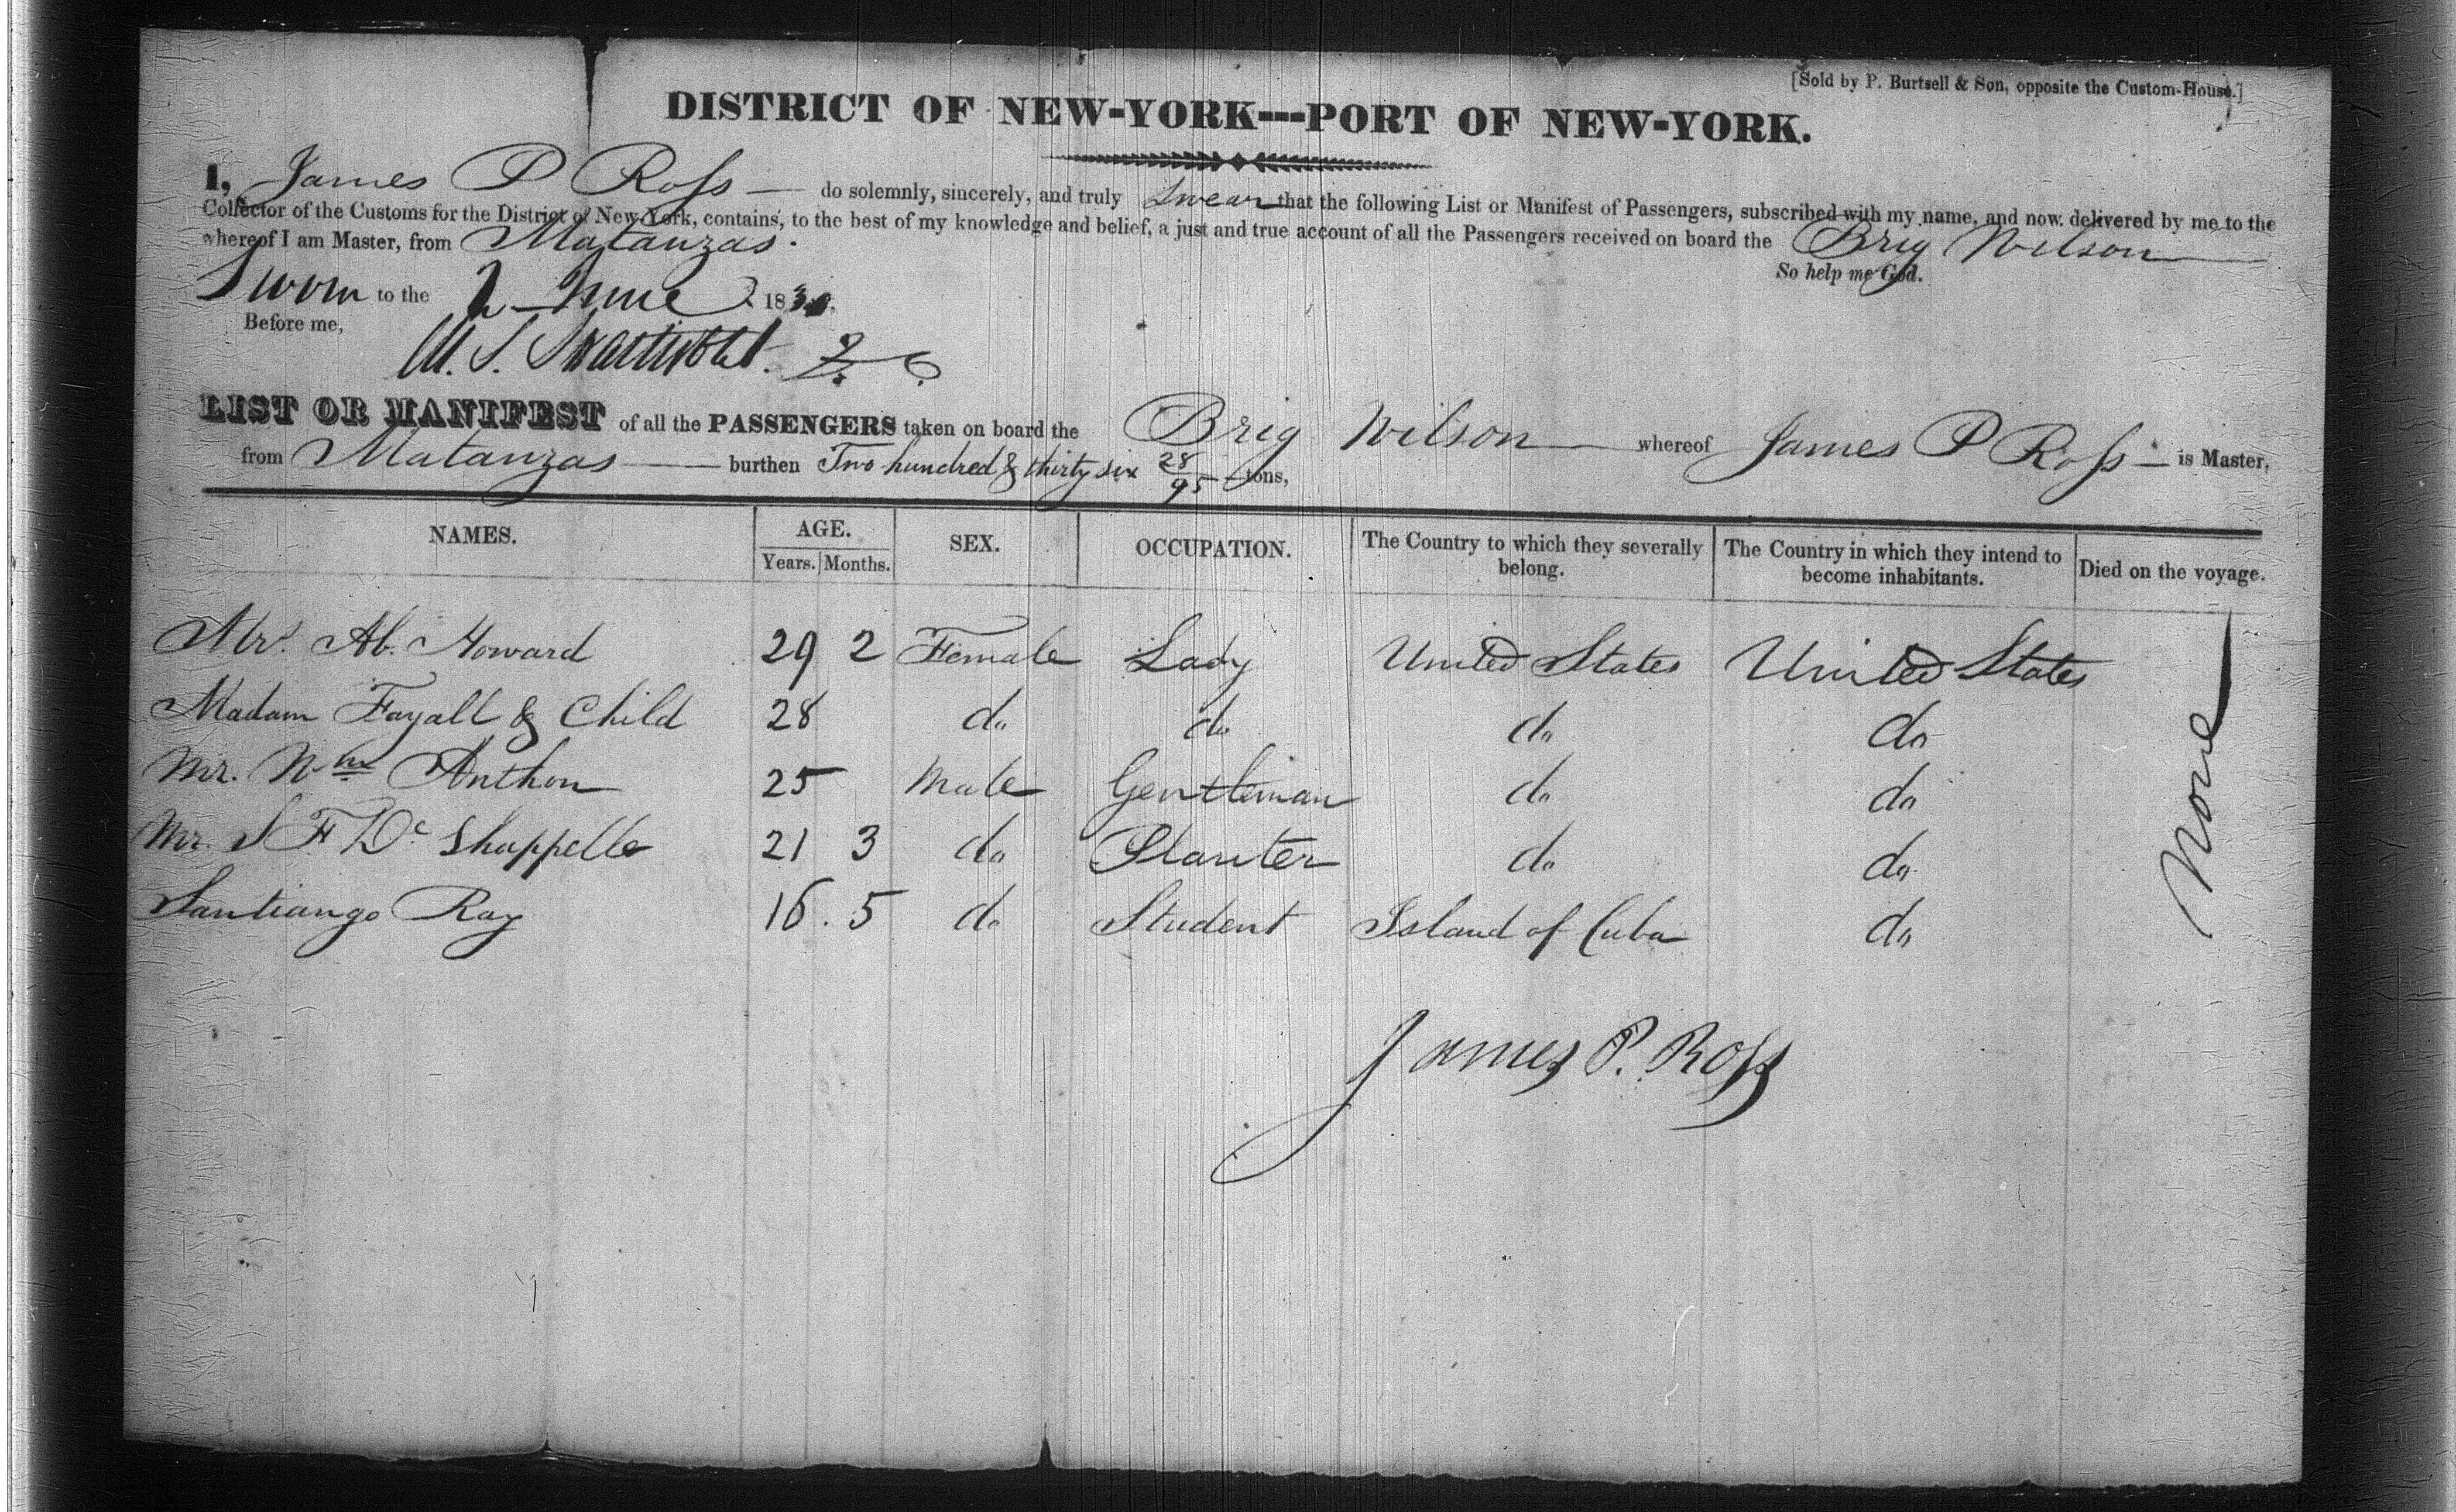 [Sold by P. Burtsell & Son, opposite the Custom-House.]
DISTRICT OF NEW-YORK---PORT OF NEW-YORK.
I, James P Ross do solemnly, sincerely, and truly swear that the following List or Manifest of Passengers, subscribed with my name, and now delivered by me to the
Collector of the Customs for the District of New-York, contains, to the best of my knowledge and belief, a just and true account of all the Passengers received on board the Brig Wilson
whereof I am Master, from Matanzas.
So help me God.
Sworn to the 2 June 183
Before me,
M. S. Swartwout.
LIST OR MANIFEST of all the PASSENGERS taken on board the Brig Wilson whereof James P Ross is Master,
from Matanzas burthen Two hundred & thirty six 28/95 tons,
NAMES. AGE. SEX. OCCUPATION. The Country to which they severally belong. The Country in which they intend to become inhabitants. Died on the voyage.
Years. Months.
Mrs. Ab. Howard 29 2 Female Lady United States United States None
Madam Fayall & Child 28 do do do do
Mr. Wm Anthon 25 Male Gentleman do do
Mr. S F Dc Shappelle 21 3 do Planter do do
Santiango Ray 16. 5 do Student Island of Cuba do
James P. Ross